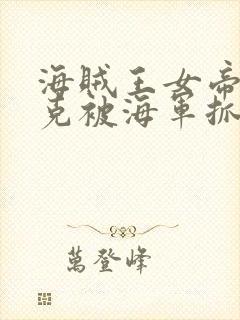 海賊王女帝
克被海軍抓
萬登峰